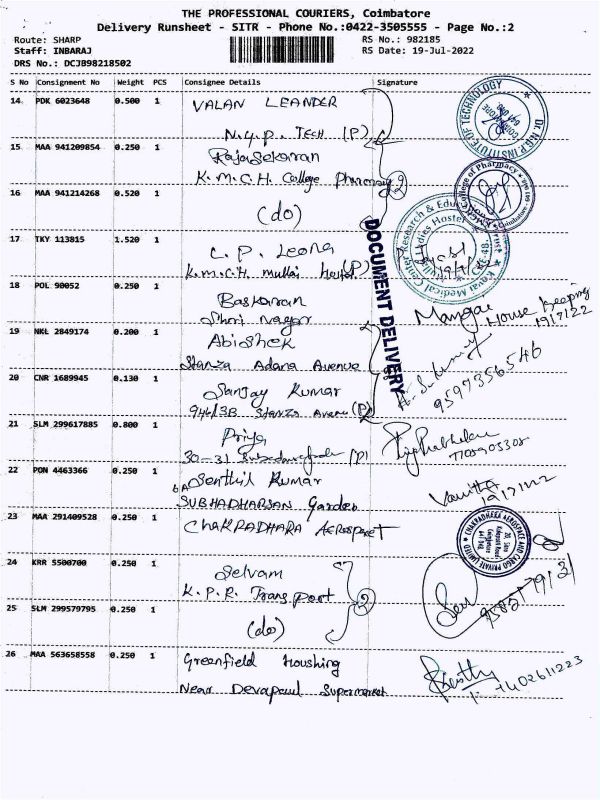 THE PROFESSIONAL COURIERS, Coimbatore
Delivery Runsheet - SITR - Phone No.:0422-3505555 - Page No.:2
Route: SHARP
RS No.: 982185
Staff: INBARAJ
RS Date: 19-Jul-2022
DRS No.: DCJB98218502
S No Consignment No Weight PCS Consignee Details Signature
14 PDK 6023648 0.500 1 VALAN LEANDER
N.G.P. TECH (P)
15 MAA 941209854 0.250 1 Rajasekaran
K.M.C.H. College Pharmacy 2
16 MAA 941214268 0.520 1 (do)
17 TKY 113815 1.520 1 L. P. Leona
K.M.C.H. mullai Hostel (P)
18 POL 90052 0.250 1 Baskaran
Shri Nagar
19 NKL 2849174 0.200 1 Abishek
Stanza Adana Avenue
20 CNR 1689945 0.130 1 Sanjay Kumar
946/3B Stanza Avenue (P)
21 SLM 299617885 0.800 1 Priya
30-31 (P)
22 PON 4463366 0.250 1 6A Senthil Kumar
SUBHADHARSAN Garden
23 MAA 291409528 0.250 1 CHAKRADHARA AEROSPACE
24 KRR 5500700 0.250 1 Selvam
K.P.R. Transport 2
25 SLM 299579795 0.250 1 (do)
26 MAA 563658558 0.250 1 Greenfield Houshing
Near Devapaul Supermarket
DOCUMENT DELIVERY
Dr. N.G.P. INSTITUTE OF TECHNOLOGY
COIMBATORE
College of Pharmacy
Kovai Medical Center Research & Educational
Ladies Hostel
Mangai House Keeping
19/7/22
9597356546
Vanitha
19/7/22
CHAKRADHARA AEROSPACE AND CARGO PRIVATE LIMITED
7402611223